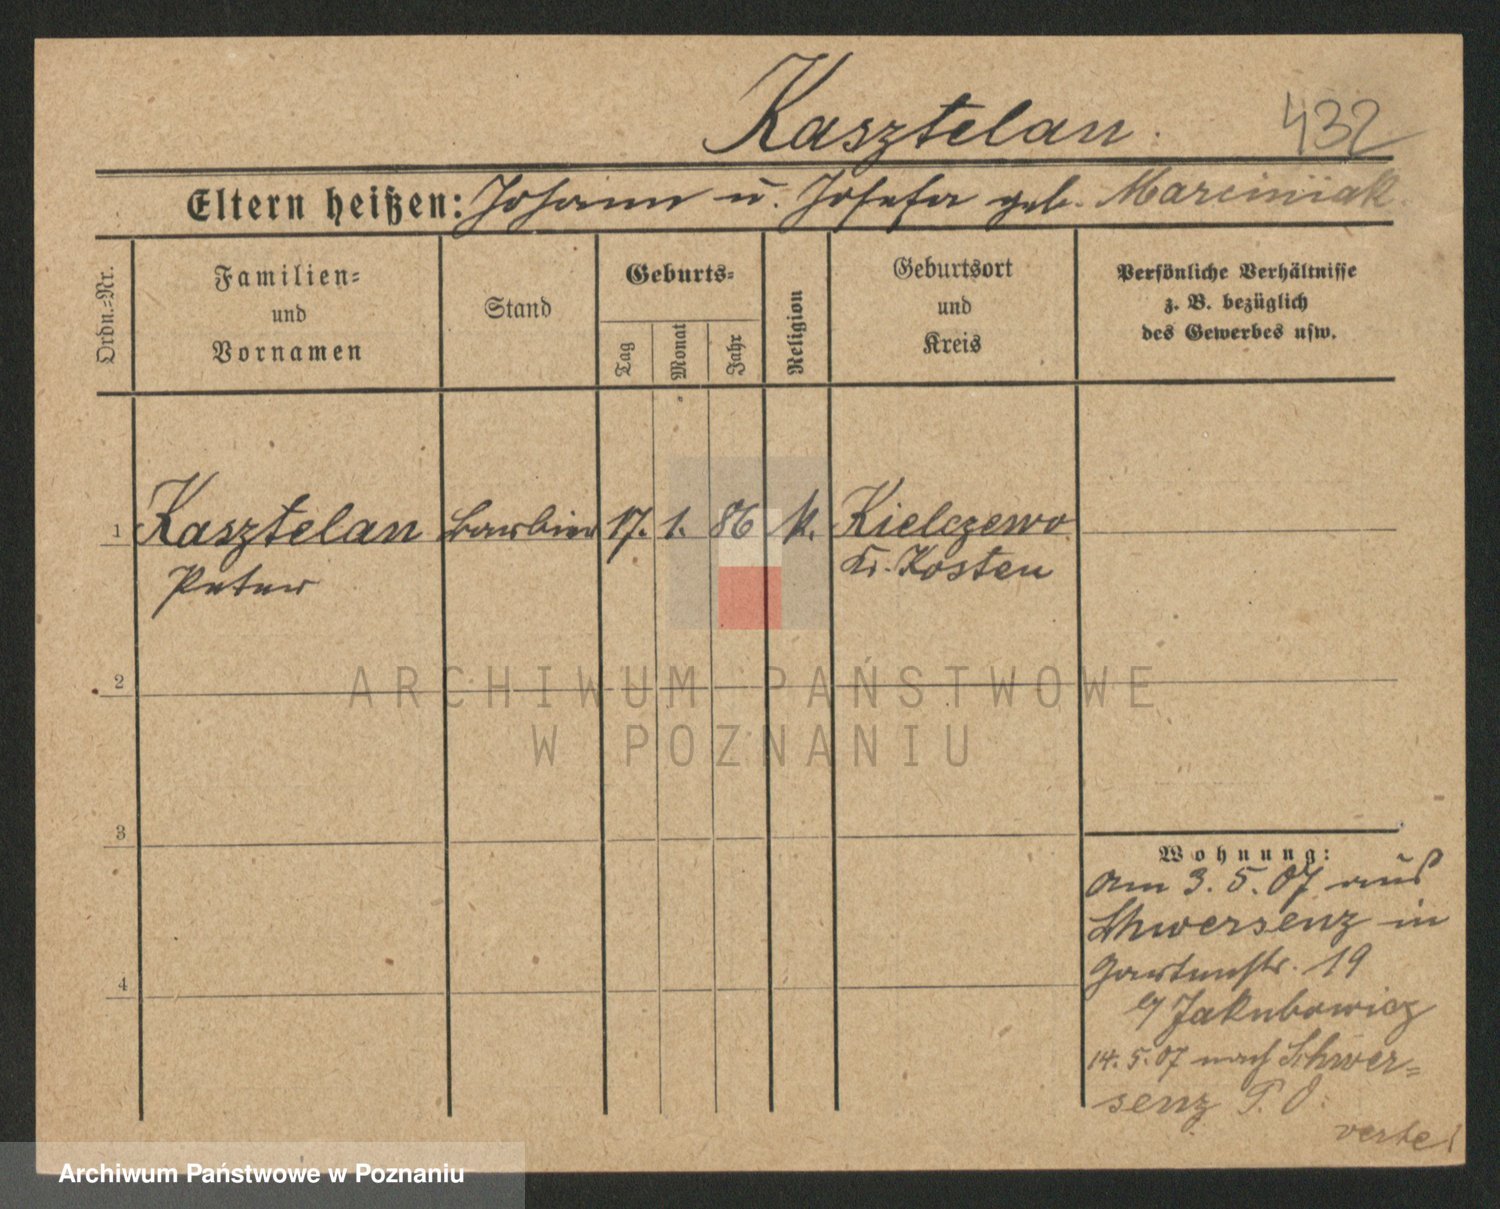 Kasztelan. 432
Eltern heißen: Johann u. Josefa geb. Marciniak.
Ordn.-Nr.
Familien-
und
Vornamen
Stand
Geburts-
Tag
Monat
Jahr
Religion
Geburtsort
und
Kreis
Persönliche Verhältnisse
z. B. bezüglich
des Gewerbes usw.
1 Kasztelan Barbier 17. 1. 86 k. Kielczewo
Peter Kr. Kosten
2
ARCHIWUM PAŃSTWOWE
W POZNANIU
3
4
Wohnung:
am 3. 5. 07 aus
Schwersenz in
Gartenstr. 19
b/ Jakubowicz
14. 5. 07 nach Schwer-
senz P. O.
verte!
Archiwum Państwowe w Poznaniu